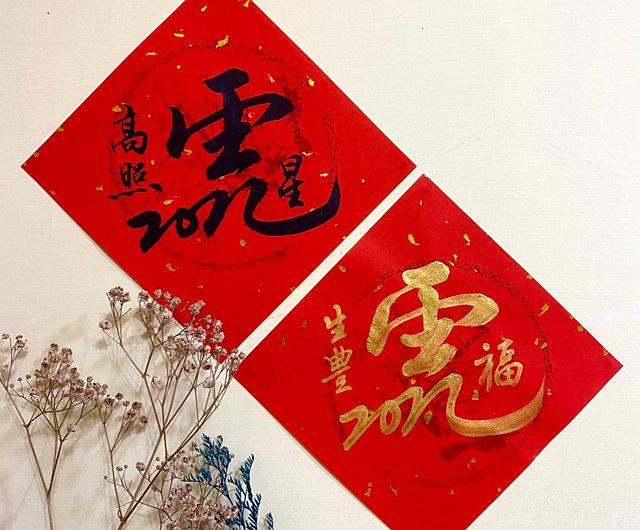 虎
2022
星
高照
虎
2022
福
生豐